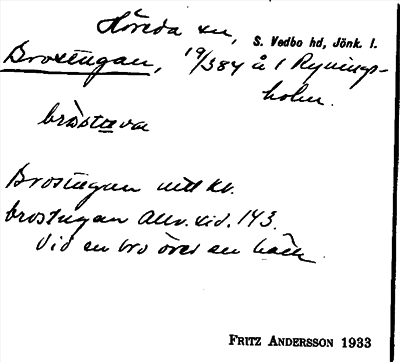 Höreda sn, S. Vedbo hd, Jönk. l.
Brostugan, 19/384 å 1 Ryningsholm.
bròstuva
Brostugan utt kv.
brostugan Allv. sid. 143.
Vid en bro över en bäck.
FRITZ ANDERSSON 1933